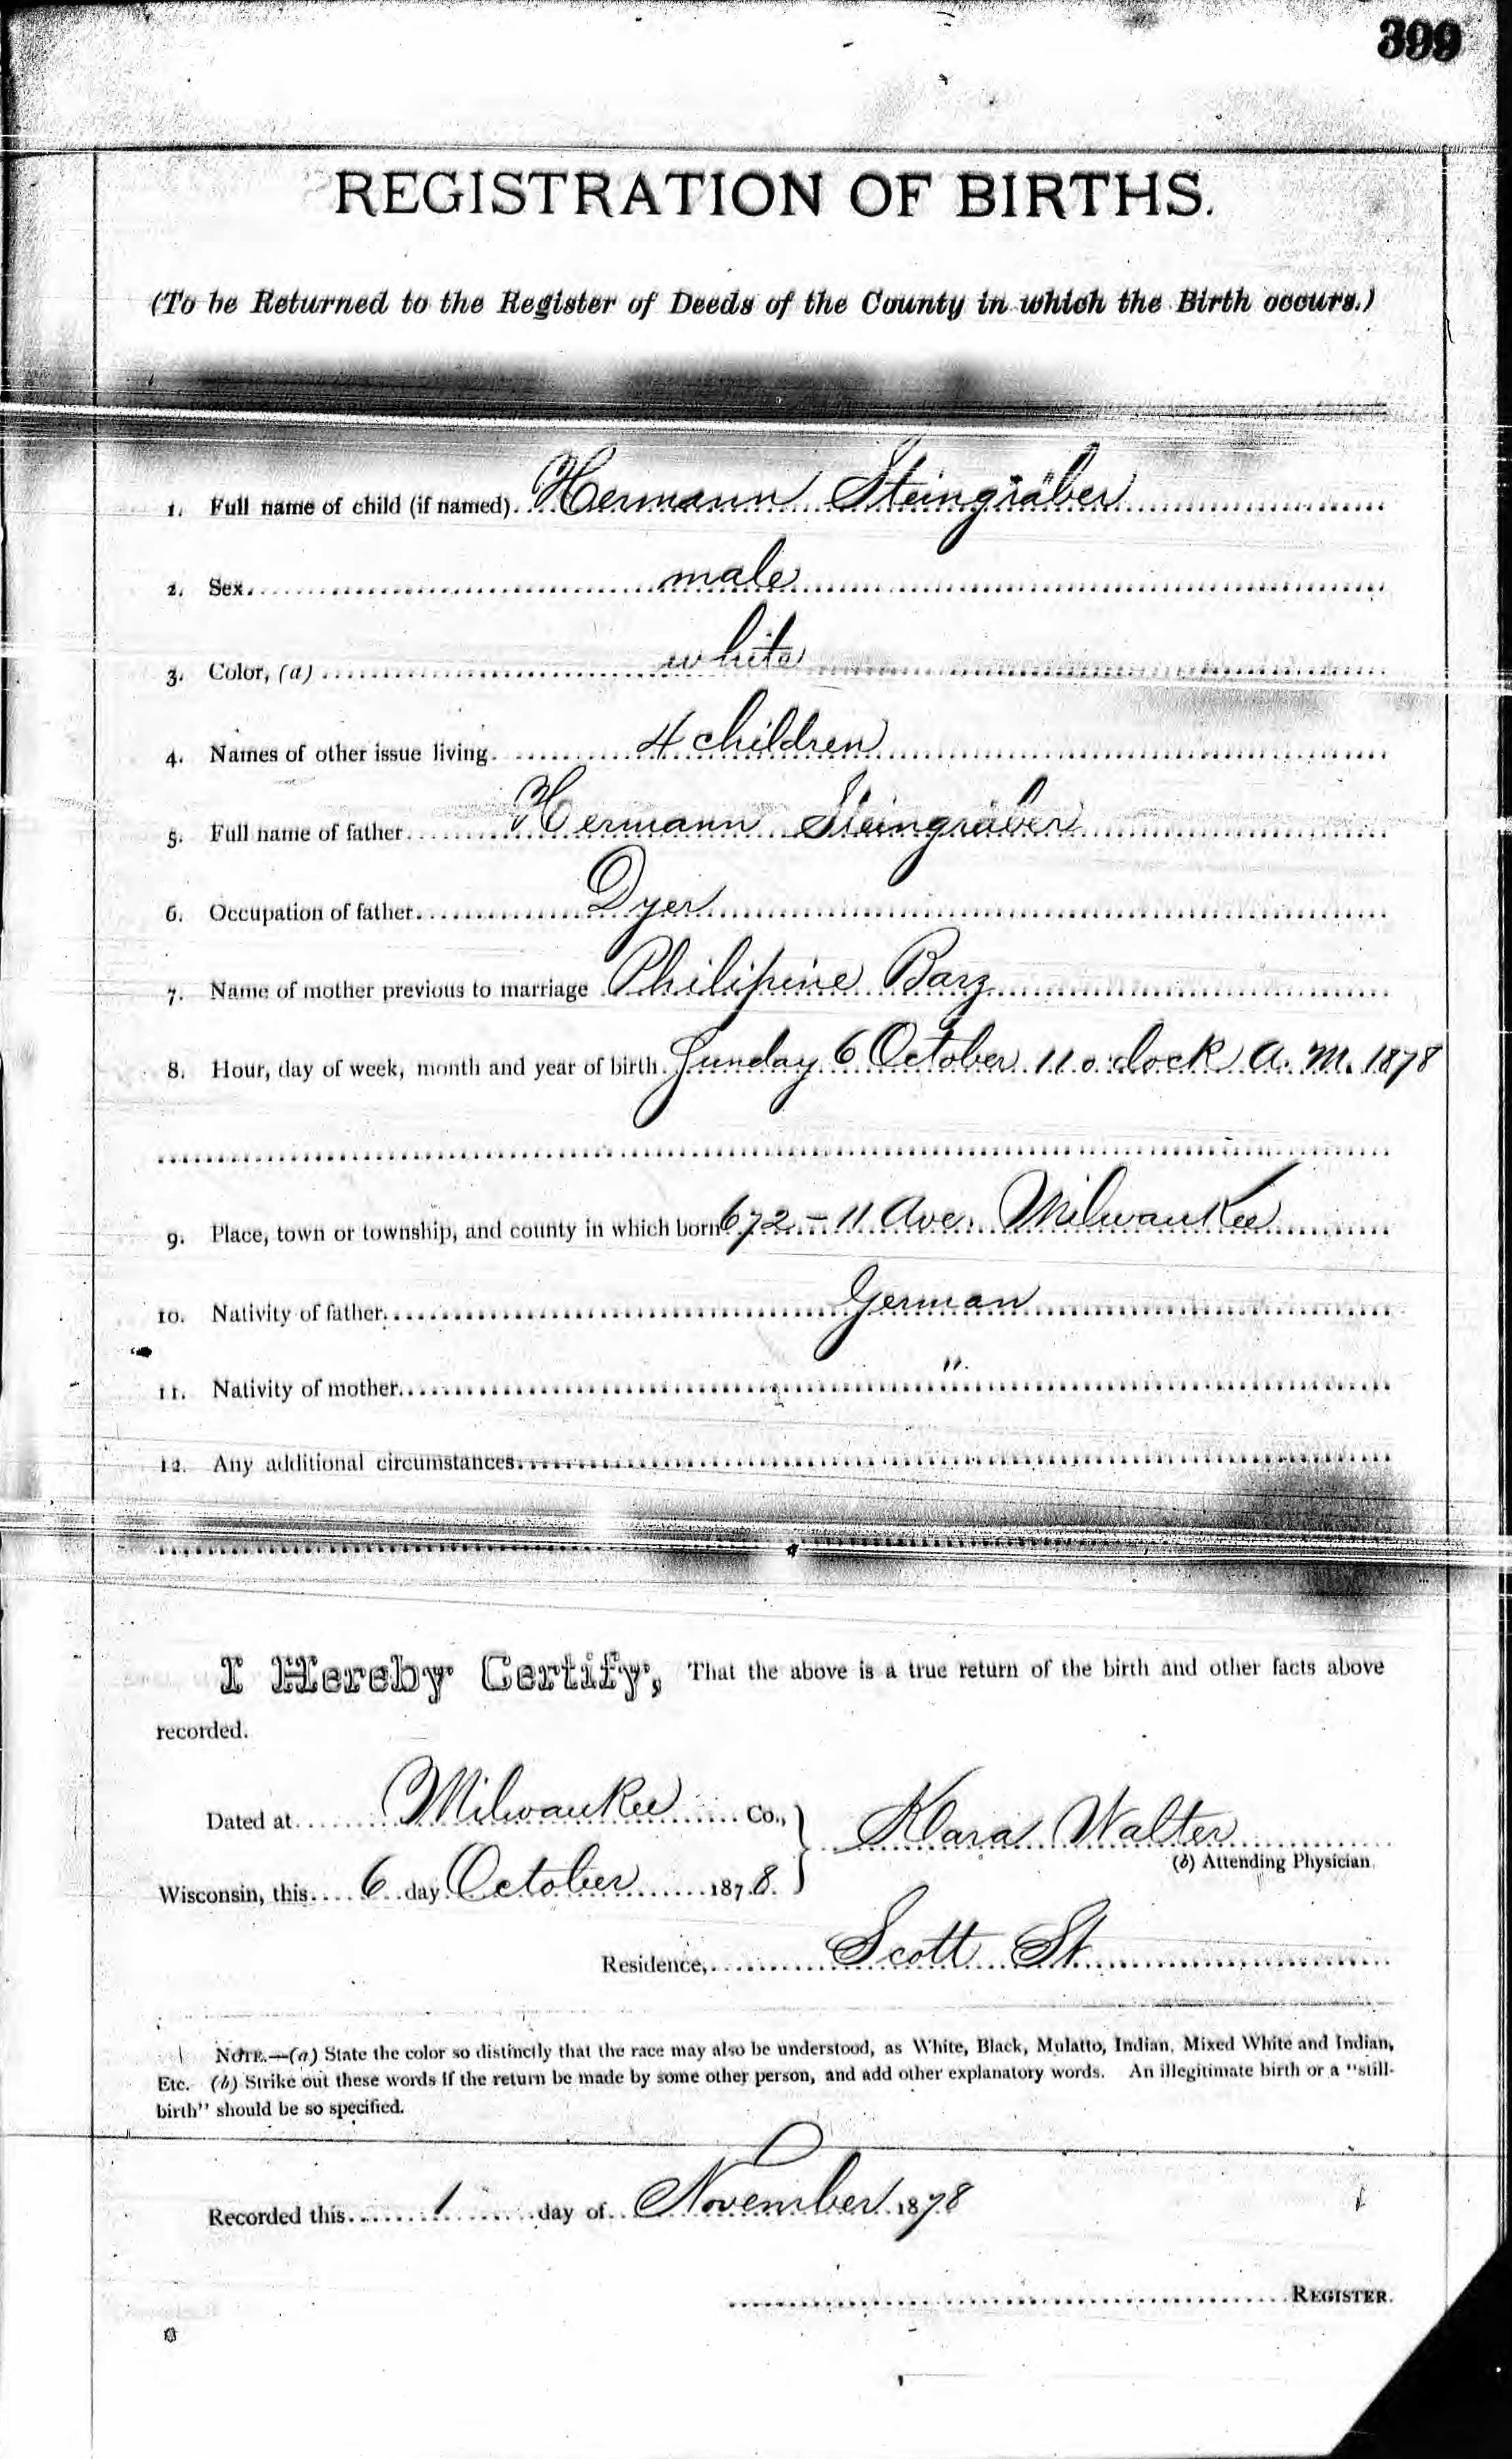 399
REGISTRATION OF BIRTHS.
(To be Returned to the Register of Deeds of the County in which the Birth occurs.)
1. Full name of child (if named) Hermann Steingräber
2. Sex male
3. Color, (a) white
4. Names of other issue living 4 children
5. Full name of father Hermann Steingräber
6. Occupation of father Dyer
7. Name of mother previous to marriage Philipine Barz
8. Hour, day of week, month and year of birth Sunday 6 October 11 o'clock A. M. 1878
9. Place, town or township, and county in which born 672 - 11 Ave. Milwaukee
10. Nativity of father German
11. Nativity of mother "
12. Any additional circumstances
I Hereby Certify, That the above is a true return of the birth and other facts above
recorded.
Dated at Milwaukee Co., Klara Walter
(b) Attending Physician
Wisconsin, this 6 day October 1878.
Residence, Scott St
NOTE.—(a) State the color so distinctly that the race may also be understood, as White, Black, Mulatto, Indian, Mixed White and Indian,
Etc. (b) Strike out these words if the return be made by some other person, and add other explanatory words. An illegitimate birth or a "still-
birth" should be so specified.
Recorded this 1 day of November 1878
REGISTER.